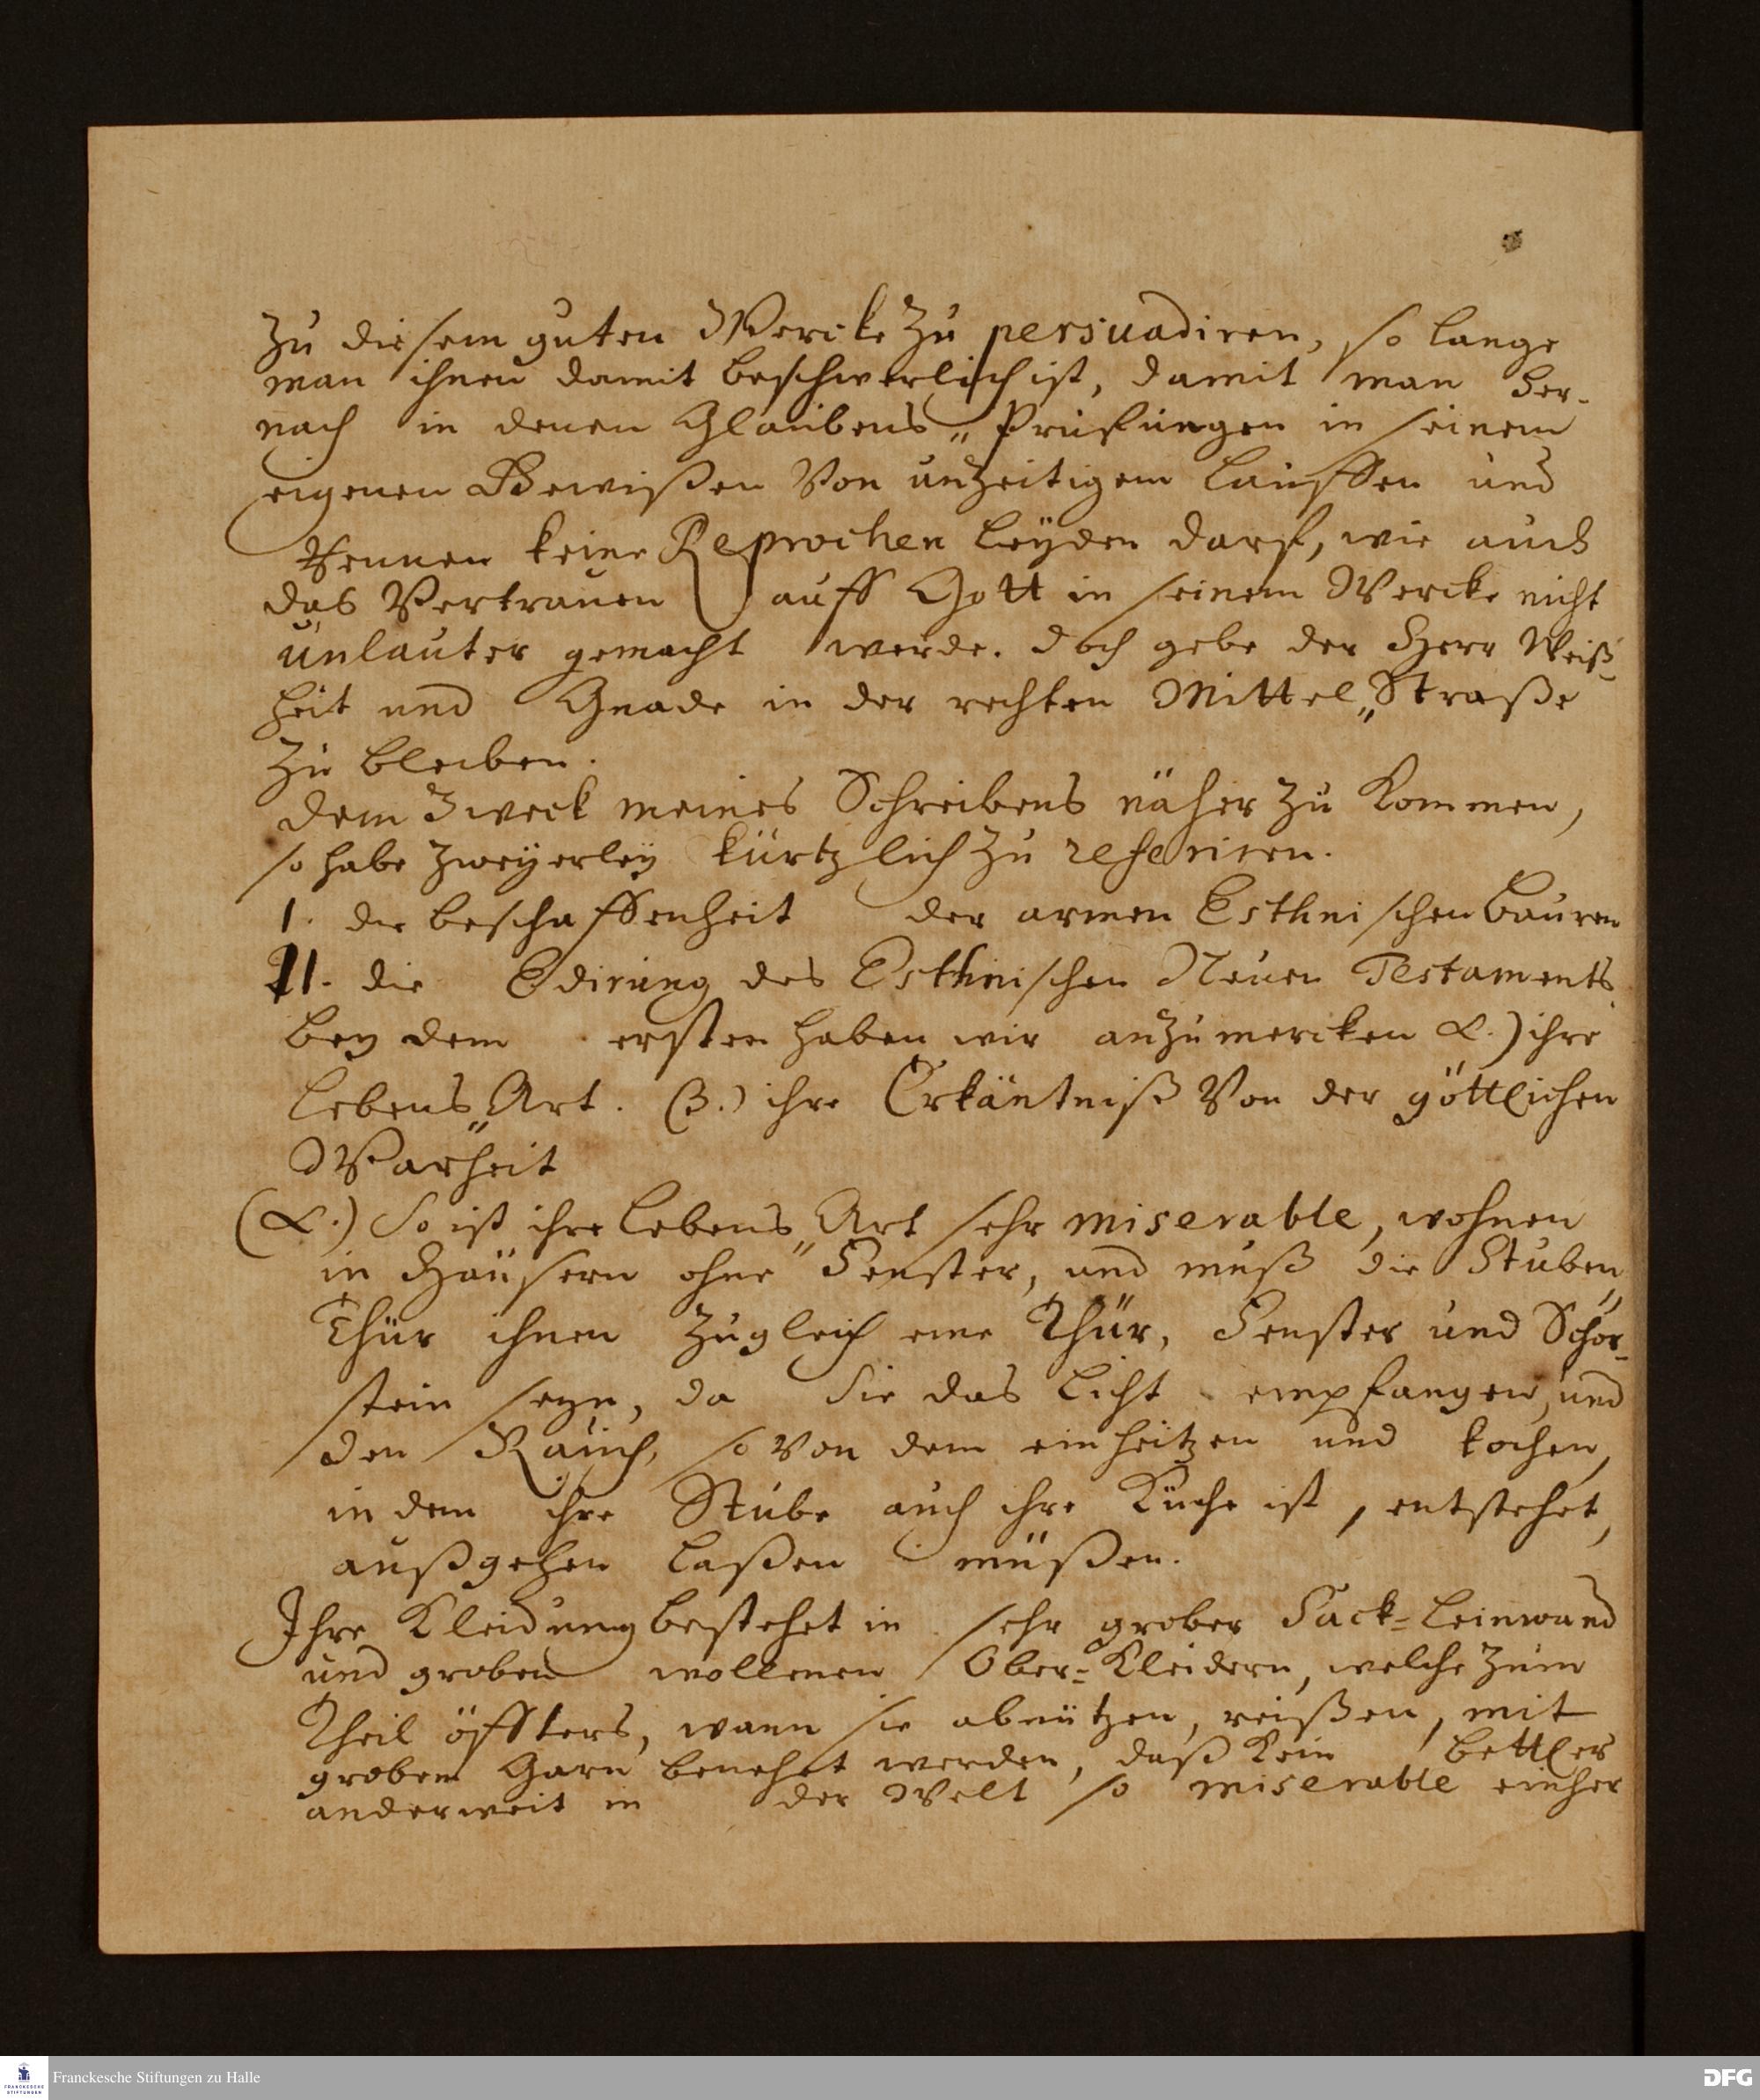 zu diesem guten Wercke zu persuadiren, so lange
man ihnen damit beschwerlich ist, damit man her-
nach in denen Glaubens„Prüfungen in seinem
eigenen Gewißen von unzeitigem Lauffen und
Rennen keine Reprochen leyden darf, wie auch
das Vertrauen auff Gott in seinem Wercke nicht
unlauter gemacht werde. Doch gebe der Herr Weiß-
heit und Gnade in der rechten Mittel„Straße
zu bleiben.
Dem Zweck meines Schreibens näher zu kommen,
so habe zweyerley kürtzlich zu referiren.
I. die beschaffenheit der armen Esthnischen Bauren
II. die Edirung des Esthnischen Neuen Testaments
bey dem ersten haben wir anzumercken α.) ihre
Lebens„Art. (β.) ihre Erkäntniß von der göttlichen
Warheit
(α.) So ist ihre Lebens„Art sehr miserable, wohnen
in Häusern ohne Fenster, und muß die Stuben„
Thür ihnen zugleich eine Thür, Fenster und Schor-
stein seyn, da sie das Licht empfangen, und
den Rauch, so von dem einheitzen und kochen,
in dem ihre Stube auch ihre Küche ist, entstehet,
außgehen laßen müßen.
Ihre Kleidung bestehet in sehr grober Sack-Leinwand
und groben wollenen Ober-Kleidern, welche zum
Theil öffters, wann sie abnützen, reißen, mit
grobem Garn benehet werden, daß kein bettler
anderweit in der Welt so miserable einher
Franckesche Stiftungen zu Halle
DFG